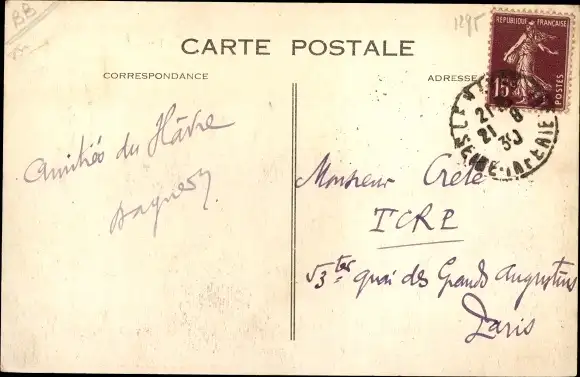 BB
1295
CARTE POSTALE
CORRESPONDANCE
ADRESSE
RÉPUBLIQUE FRANÇAISE
15
POSTES
21
21 8
30
SEINE-INFÉRIE
Amitiés du Hâvre
Monsieur Crété
ICRE
53ter quai des Grands Augustins
Paris